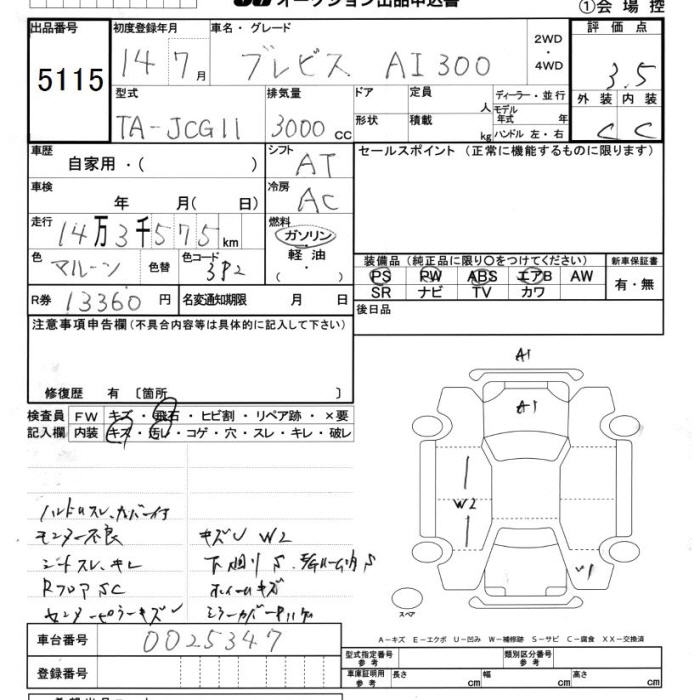 オークション出品申込書
①会場控
出品番号 初度登録年月 車名・グレード 2WD ・ 4WD 評価点
5115 14年7月 ブレビス AI300 3.5
型式 排気量 ドア 定員 人 ディーラー・並行 外装 内装
TA-JCG11 3000cc 形状 積載 kg モデル年式 年 ハンドル 左・右 C C
車歴 シフト セールスポイント(正常に機能するものに限ります)
自家用・( ) AT
車検 冷房
年 月( 日) AC
走行 燃料
14万3千575km ガソリン
色 色替 色コード 軽油 装備品(純正品に限り○をつけてください) 新車保証書
マルーン 3P2 ( ・ ) PS PW ABS エアB AW 有・無
SR ナビ TV カワ
R券 13360円 名変通知期限 月 日 後日品
注意事項申告欄(不具合内容等は具体的に記入して下さい)
修復歴 有 〔箇所 〕
検査員 FW キズ・飛石・ヒビ割・リペア跡・×要
記入欄 内装 キズ・汚レ・コゲ・穴・スレ・キレ・破レ
A1
A1
W2
U1
ハンドルスレ、カバー付
モニター不良 キズU W2
シートスレ、キレ
RフロアSC ホイールキズ
センターピラーキズU
スペア
A-キズ E-エクボ U-凹み W-補修跡 S-サビ C-腐食 XX-交換済
車台番号 0025347
登録番号
型式指定番号 参考 類別区分番号 参考
車庫証明用 参考 長さ cm 幅 cm 高さ cm